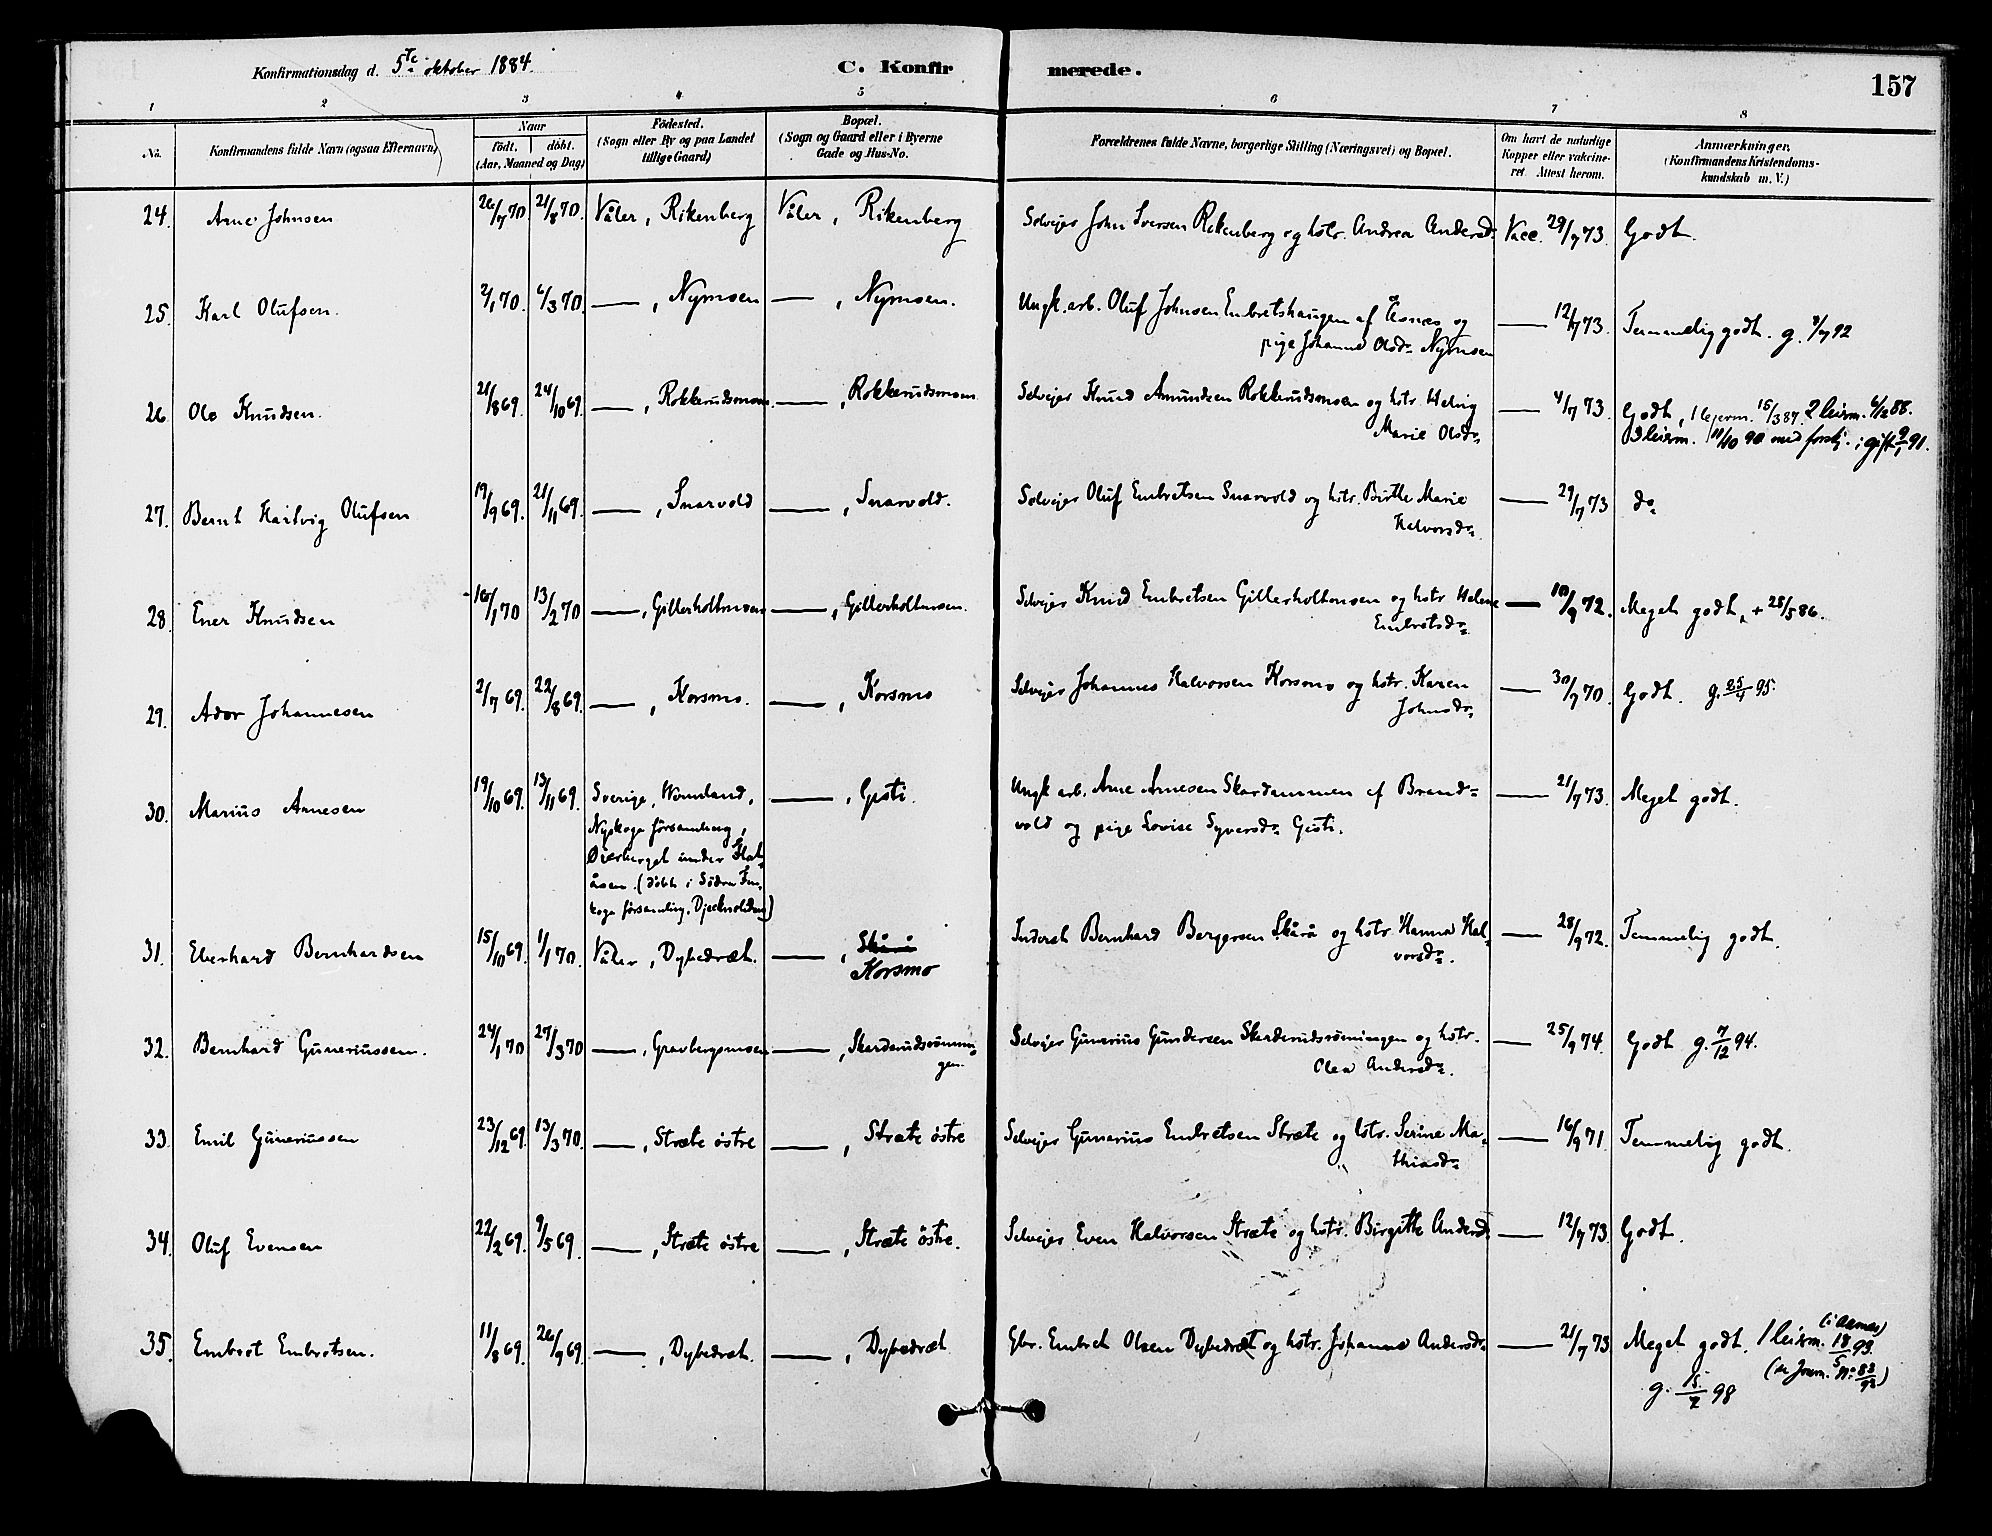 Konfirmationsdag d. 5te oktober 1884. C. Konfirmerede. 157
1 2 3 4 5 6 7 8
No. Konfirmandens fulde Navn (ogsaa Efternavn) Naar födt. döbt. (Aar, Maaned og Dag) Födested. (Sogn eller By og paa Landet tillige Gaard) Bopæl. (Sogn og Gaard eller i Byerne Gade og Hus-No. Forældrenes fulde Navne, borgerlige Stilling (Næringsvei) og Bopæl. Om havt de naturlige Kopper eller vakcineret. Attest herom. Anmærkninger, (Konfirmandens Kristendomskundskab m. V.)
24. Arne Johnsen 26/7 70 21/8 70. Våler, Rikenberg Våler, Rikenberg Selvejer John Iversen Rikenberg og hstr. Andrea Andersd. Vacc. 29/7 73. Godt.
25. Karl Olufsen. 2/1 70. 6/3 70. —, Nymoen —, Nymoen. Ungk. arb. Oluf Johnsen Embretshaugen af Åsnes og — 12/7 73. Temmelig godt. g. 8/7 92
pige Johanne Olsd. Nymoen
26. Ole Knudsen. 21/8 69. 24/10 69. —, Rokkerudsmoen. —, Rokkerudsmoen. Selvejer Knud Amundsen Rokkerudsmoen og hstr. Helvig — 4/7 73. Godt, 1 lejerm. 15/3 87. 2 leirm. 6/2 88.
Marie Olsd. 3 leierm. 11/10 90 med forskj. ; gift 9/1 91.
27. Bernt Hartvig Olufsen 19/9 69. 21/11 69. —, Snarvold —, Snarvold. Selvejer Oluf Embretsen Snarvold og hstr. Birthe Marie — 29/7 73 do
Halvorsd.
28. Ener Knudsen 16/1 70 13/2 70 —, Gillerholtmoen —, Gillerholtmoen. Selvejer Knud Embretsen Gillerholtmoen og hstr Helene — 10/9 72. Meget godt, + 28/5 86.
Embretsd.
29. Ador Johannesen 2/7 69. 22/8 69. —, Korsmo. —, Korsmo Selvejer Johannes Halvorsen Korsmo og hstr. Karen — 30/7 70. Godt. g. 25/4 95.
Johnsd.
30. Marius Arnesen 19/10 69. 13/11 69. Sverige, Wermland, —, Gjesti. Ungk arb. Arne Arnesen Skardammen af Brand- — 21/7 73. Meget godt.
Nyskoga församling, vold og pige Lovise Syversd. Gjesti.
under
åsen. (döbt i Södra Fin-
skoga församling,
31. Eberhard Bernhardsen 15/10 69. 1/1 70. Våler, Dybedræt. —, Skårå Inderst Bernhard Bergersen Skårå og hstr. Hanna Hal- — 28/9 72. Temmelig godt.
Korsmo vorsd.
32. Bernhard Guneriussen. 24/1 70 27/3 70 —, Gravbergsmoen —, Skarderudsrømnin- Selvejer Gunerius Gundersen Skarderudsrømningen og hstr. — 25/9 74. Godt g. 7/12 94.
gen. Olea Andersd.
33. Emil Guneriussen 23/12 69. 13/3 70. —, Stræte östre —, Stræte östre Selvejer Gunerius Embretsen Stræte og hstr. Serine Ma- — 16/9 71 Temmelig godt.
thiasd.
34. Oluf Evensen 22/2 69. 9/5 69. —, Stræte östre —, Stræte östre. Selvejer Even Halvorsen Stræte og hstr. Birgitte Andersd. — 12/7 73. Godt.
35. Embret Embretsen. 11/8 69. 26/9 69. —, Dybedræt. —, Dybedræt. Gbr. Embret Olsen Dybedræt og hstr. Johanne Andersd. — 21/7 73 Meget godt. 1 leierm. 18/5 93. (i Åsnes)
g. 15/2 98